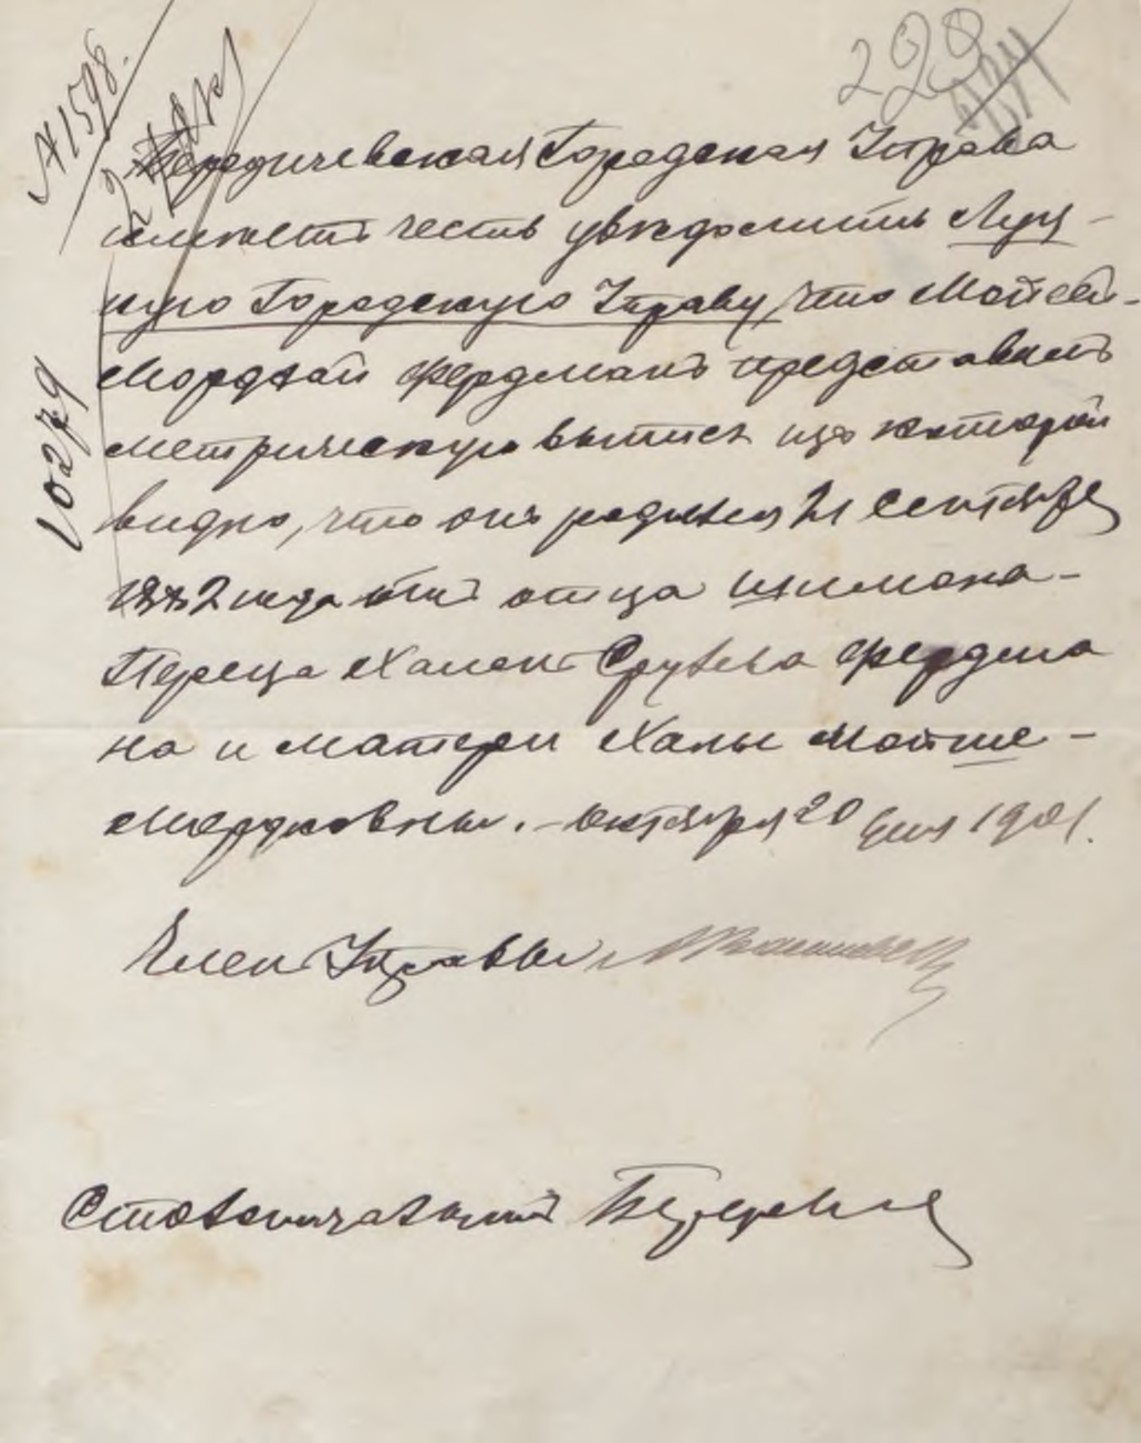 228
№ 1598.
10279
Бердичевская Городская Управа
имеетъ честь увѣдомить Луц-
кую Городскую Управу, что Мойсей-
Мордхай Фердманъ представилъ
метрическую выпись изъ которой
видно, что онъ родился 21 Сентября
1882 года отъ отца Шимона-
Переца Хаимъ Срулева Фердма
на и матери Ханы Мойше-
Мордковны. - Октября 20 дня 1901.
Членъ Управы
Столоначальникъ